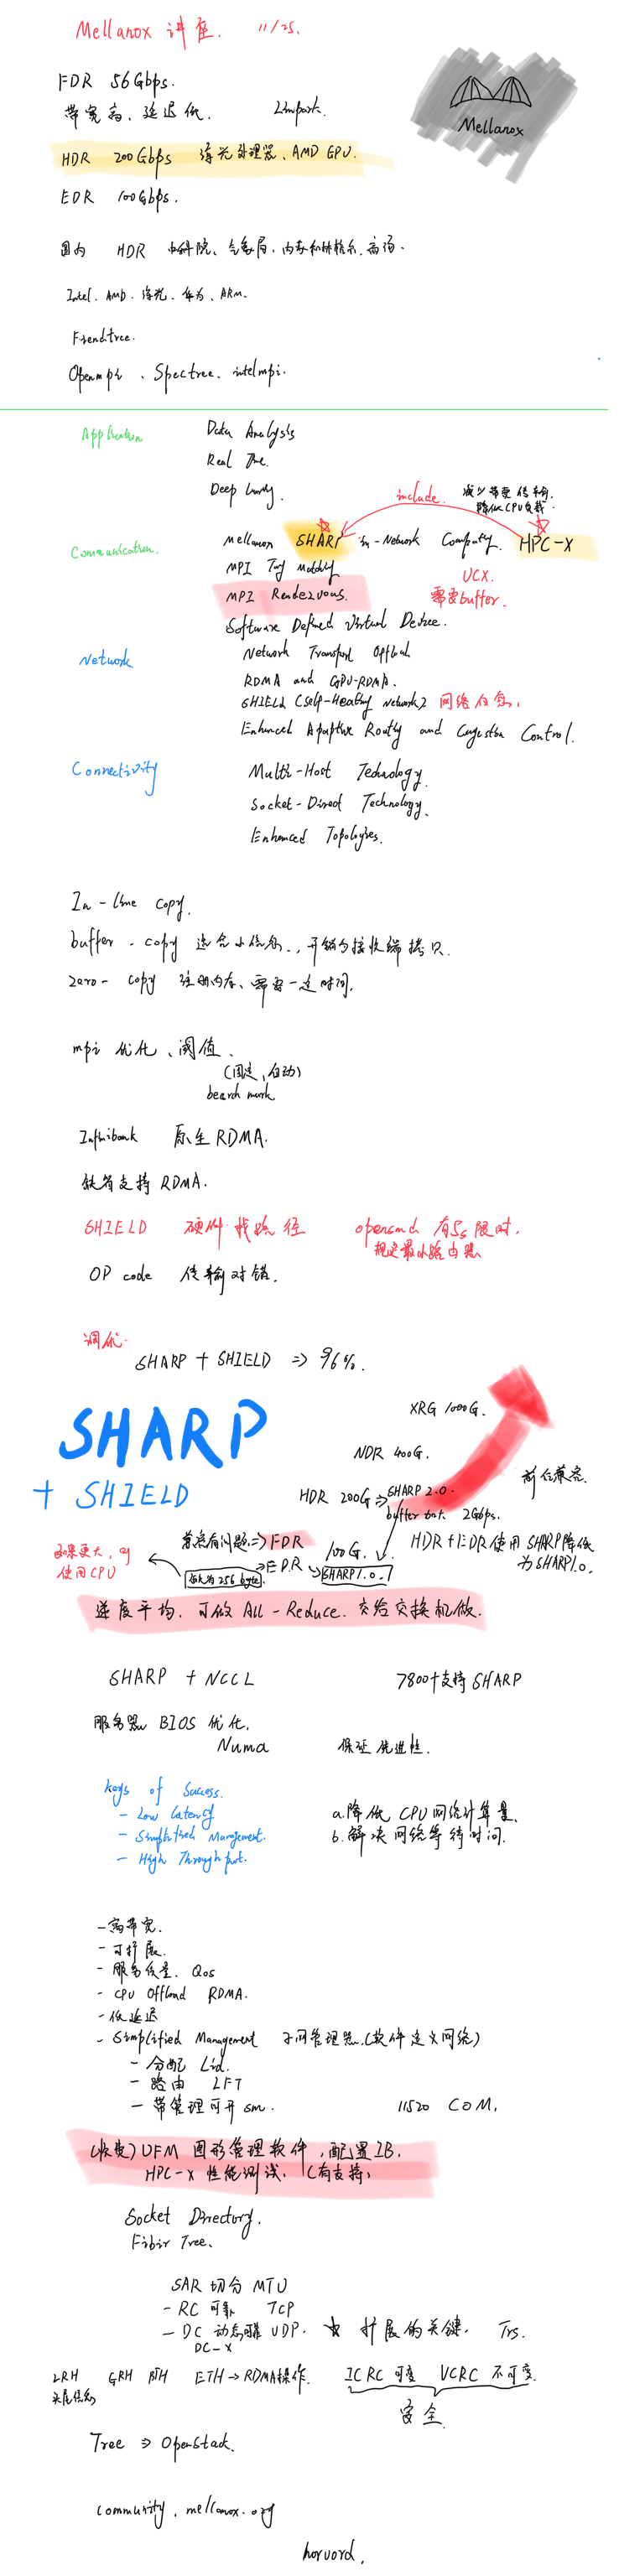 Mellanox 讲座. 11/25.
FDR 56Gbps.
带宽高、延迟低. Linpack.
Mellanox
HDR 200Gbps 海光处理器、AMD GPU.
EDR 100Gbps.
国内 HDR 气象局、内蒙和林格尔
Intel. AMD. 海光、华为、ARM.
Openmpi、Spectree. intelmpi.
Application Data Analysis
Real Time.
Deep
include. 减少带宽传输.
降低CPU负载.
Communication. Mellanox SHARP In-Network Computing. HPC-X
MPI Tag Matching
UCX.
MPI Rendezvous. 需要buffer.
Software Defined Virtual Device.
Network Network Transport Offload
RDMA and GPU-RDMA.
SHIELD (Self-Healing Network) 网络自愈.
Enhanced Adaptive Routing and Congestion Control.
Connectivity Multi-Host Technology.
Socket-Direct Technology.
Enhanced Topologies.
In-line copy.
buffer-copy 适合小信息..,开销与接收端拷贝.
zero-copy 注册内存、需要一定时间.
mpi 优化、阈值、
(固定、自动)
bearch mark
Infiniband 原生 RDMA.
支持 RDMA.
SHIELD 硬件找路径 opensmd 有5s限时.
规定最小路由器
OP code 传输对错.
调优.
SHARP + SHIELD => 96%.
SHARP
+ SHIELD
XRG 1000G.
NDR 400G.
HDR 200G => SHARP 2.0. 前后兼容.
2Gbps.
有问题 => FDR 100G. HDR+EDR使用SHARP降低
为SHARP1.0.
如果更大,可
使用CPU
256 byte. => EDR SHARP1.0.
梯度平均. 可做 All-Reduce. 交给交换机做.
SHARP + NCCL 7800+支持SHARP
服务器 BIOS 优化.
Numa 保证先进性.
keys of Success.
- Low Latency
- Simplified Management.
- High Throughput.
a.降低 CPU网络计算量.
b.解决网络等待时间.
- 高带宽.
- 可扩展.
- 服务质量. Qos
- CPU Offload RDMA.
- 低延迟
- Simplified Management 子网管理器.(软件定义网络)
- 分配 Lid.
- 路由 LFT
- 带管理可开 sm. 11520 COM.
(收费) UFM 图形管理软件,配置IB.
HPC-X 性能测试. (有支持)
Socket Directory.
Fibir Tree.
SAR 切分 MTU
- RC 可靠 TCP
- DC 动态可靠 UDP. ☆ 扩展的关键.
DC-X
LRH GRH BTH ETH → RDMA操作. ICRC 可变 VCRC 不可变.
安全.
Tree => OpenStack.
community.mellanox.org